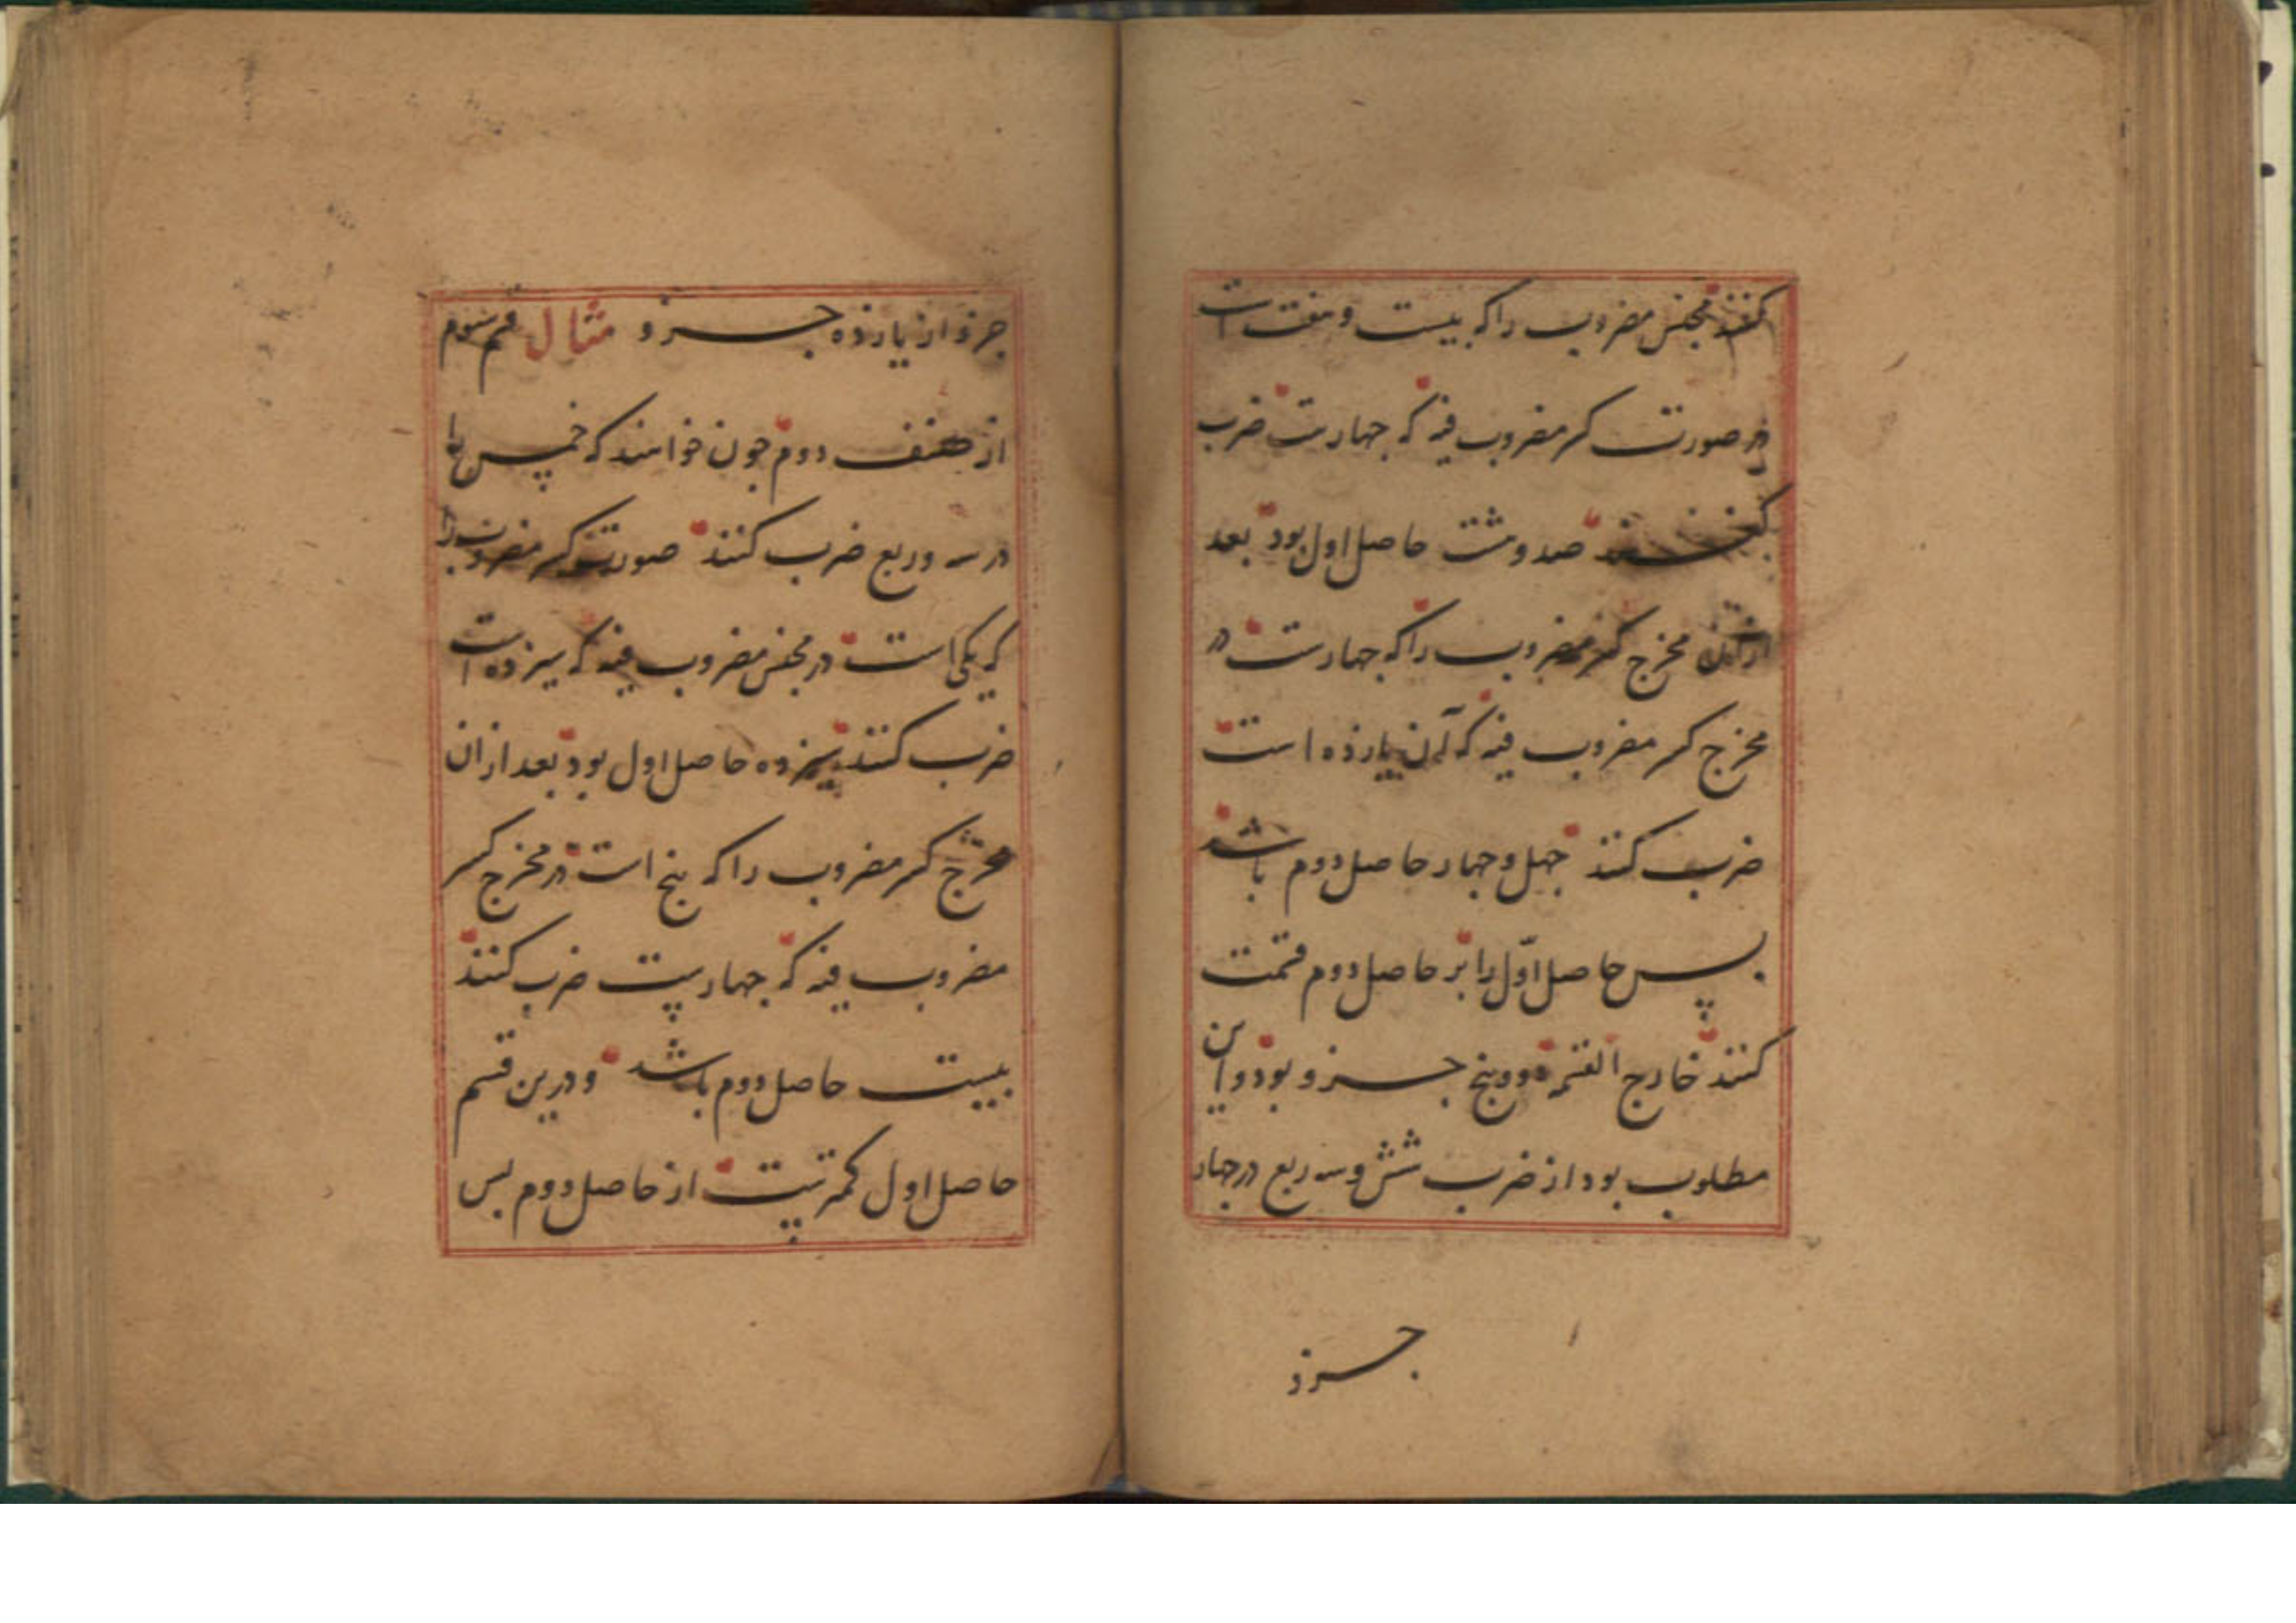 کنند مجنس مضروب را که بیست و هفت است
در صورت کسر مضروب فیه که چهارست ضرب
کنند صد و هشت حاصل اول بود بعد
ازان مخرج کسر مضروب را که چهارست در
مخرج کسر مضروب فیه که آن یازده است
ضرب کنند چهل و چهار حاصل دوم باشد
پس حاصل اول را بر حاصل دوم قسمت
کنند خارج القسمه دو و پنج جزو بود و این
مطلوب بود از ضرب شش و سه ربع در چهار
جزو
جزو از یازده جزو مثال قسم سوم
از صنف دوم چون خواهند که خمس را
در سه و ربع ضرب کنند صورت کسر مضروب را
که یکی است در مجنس مضروب فیه که سیزده است
ضرب کنند سیزده حاصل اول بود بعد ازان
مخرج کسر مضروب را که پنج است در مخرج کسر
مضروب فیه که چهارست ضرب کنند
بیست حاصل دوم باشد و درین قسم
حاصل اول کمترست از حاصل دوم پس